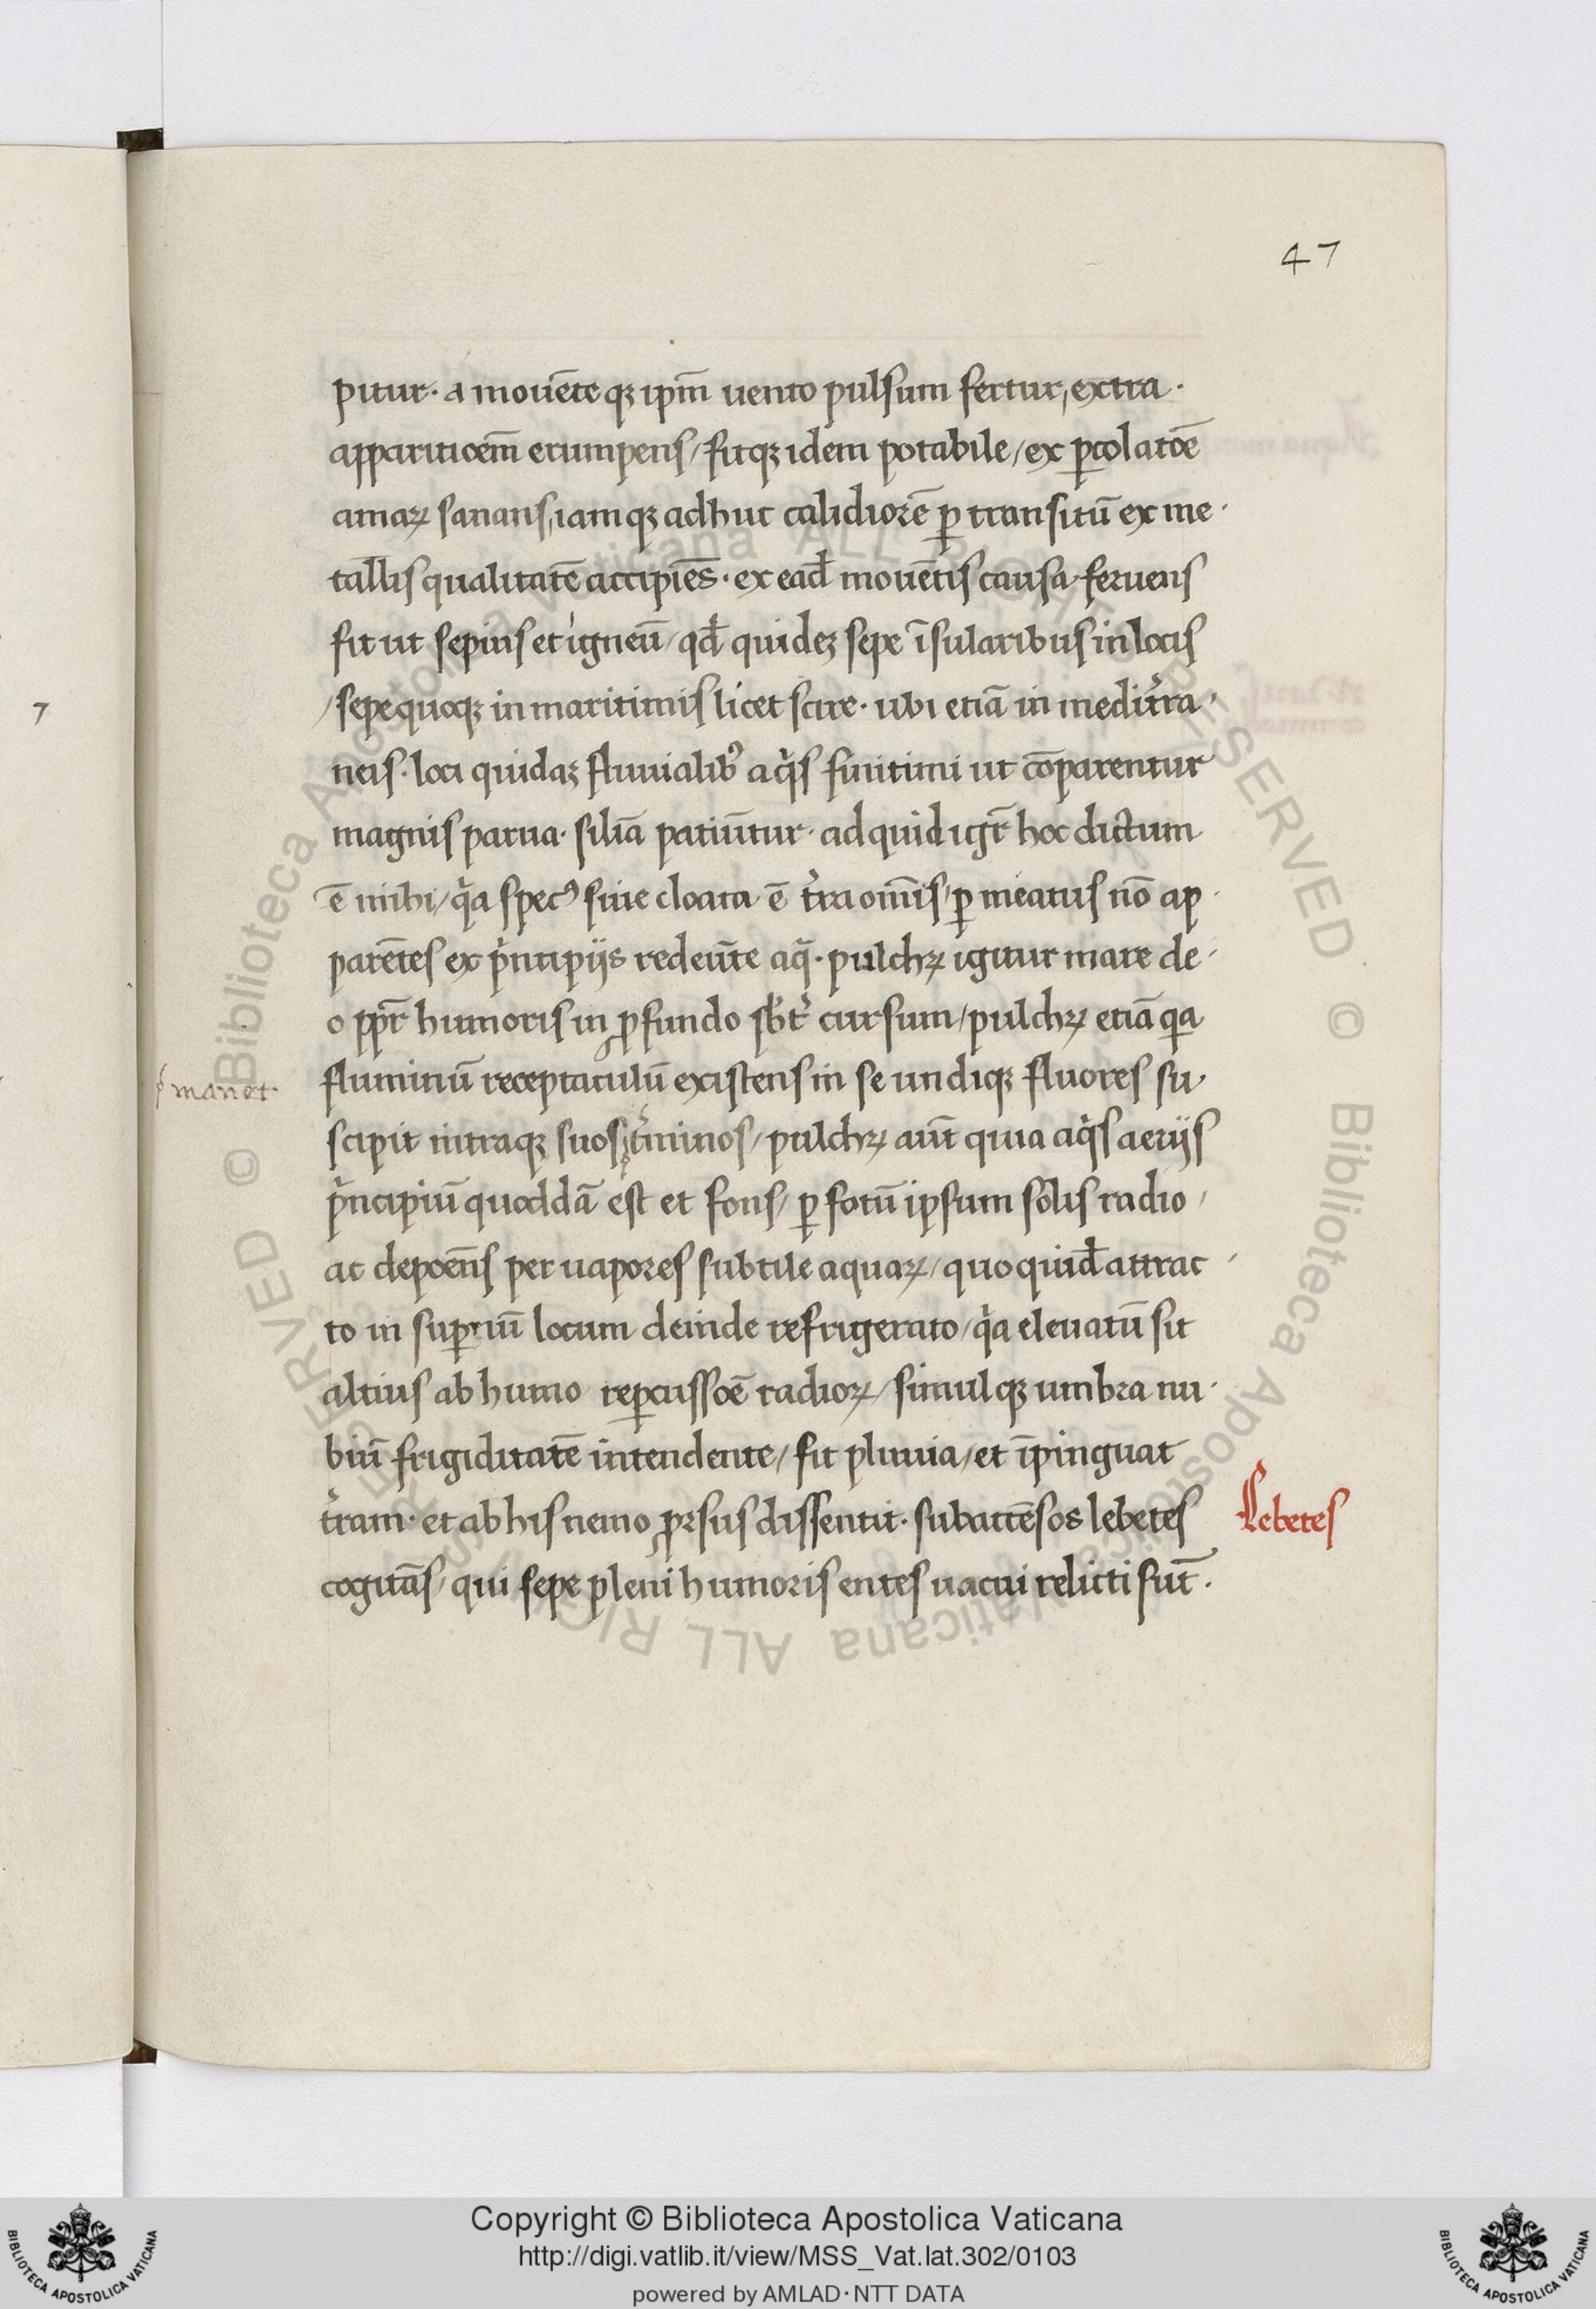 47
pitur· a mouēte qꝫ ip̄m uento pulsum fertur, extra·
apparitioem̄ erumpens/ fitqꝫ idem potabile/ ex ꝑcolatōe
amaꝝ sanans, iamqꝫ adhuc calidiorē ꝑ transitū ex me·
tallis qualitatē accipiēs· ex ead̄ mouētis causa feruens
fit ut sepius et igneū/ qd̄ quideꝫ sepe īsularibus in locis
/sepe quoqꝫ in maritimis licet scire· ubi etiā in medit̉ra·
neis· loca quidaꝫ fluuialibꝰ aq̉s finitimi ut cōparentur
magnis parua· siliā patiūtur· ad quid igr̄ hoc dictum
ē mihi/ q̉a specꝰ siue cloaca ē t̉ra om̄is/ ꝑ meatus nō ap·
parētes ex p̉ncipijs redeūte aq̄· pulchꝝ igitur mare de·
o ppr̄ humoris in ꝓfundo sbt̉ cursum/ pulchꝝ etiā qa
fluminū receptaculū existens in se undiqꝫ fluores su·
scipit intraqꝫ suos t̉minos/ pulchꝝ aūt quia aq̉s aerijs
ꝓ manet·
p̉ncipiū quoddā est et fons/ ꝑ fotū ipsum solis radio/
ac depōens per uapores subtile aquaꝝ/ quo quid̄ attrac/
to in suꝑiū locum deinde refrigerato/ q̉a eleuatū sit
altius ab humo reꝑcussōe radioꝝ/ simulqꝫ umbra nu·
biū frigiditatē intendente/ fit pluuia/ et īpinguat
t̉ram· et ab his nemo ꝓrsus dissentit· subaccēsos lebetes
Lebetes
cogitās/ qui sepe pleni humoris entes uacui relicti sūt·
7
Copyright © Biblioteca Apostolica Vaticana
http://digi.vatlib.it/view/MSS_Vat.lat.302/0103
powered by AMLAD · NTT DATA
BIBLIOTECA APOSTOLICA VATICANA
BIBLIOTECA APOSTOLICA VATICANA